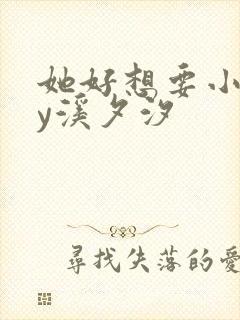 她好想要小
y溪夕汐
尋找失落的愛